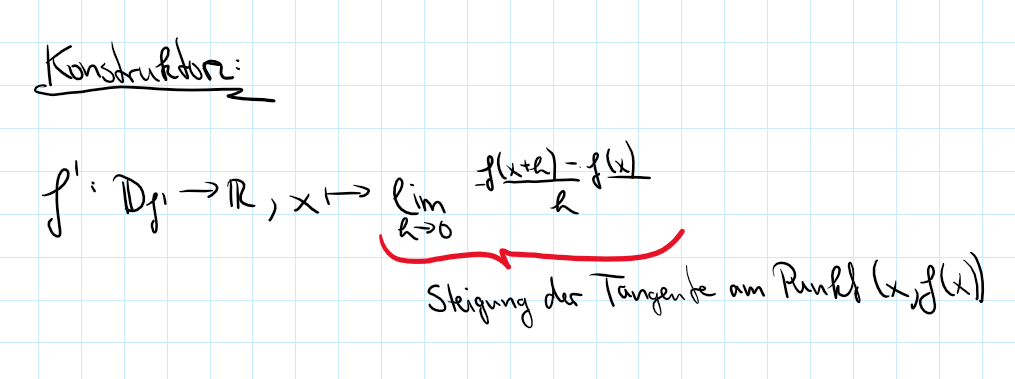 Konstruktor:
f': D_f' → ℝ, x ↦ lim_{h→0} (f(x+h) - f(x))/h
Steigung der Tangente am Punkt (x, f(x))